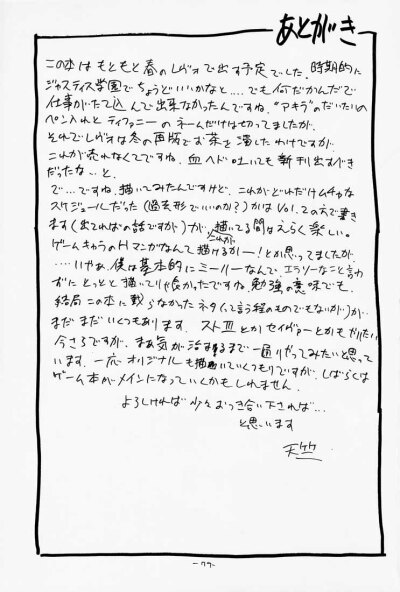 あとがき
この本はもともと春のレヴォで出す予定でした。時期的に
ジャスティス学園でちょうどいいかなと‥‥でも何だかんだで
仕事がたて込んで出来なかったんですね。"アキラ"のだいたいの
ペン入れとティファニーのネームだけはやってましたが。
それでレヴォは冬の再版でお茶を濁したわけですが
これが売れなくてですね。血ヘド吐いても新刊出すべき
だったな…と。
で…ですね。描いてみたんですけど、これがどれだけムチャな
スケジュールだった(過去形でいいのか?)かはVol.2の方で書き
ます(出てればの話ですが)が、描いてる間はえらく楽しい。
ゲームキャラのHマンガなんてこれが描けるかー!とか思ってましたが、
‥‥いやぁ、僕は基本的にミーハーなんで、エラソーなこと言わ
ずにとっとと描いてりゃ良かったですね。勉強の意味でも。
結局この本に載らなかったネタ(って言う程のものでもないが)が
まだまだいくつもあります。ストⅢとかセイヴァーとかもやりたい。
今さらですが。まぁ気が済むまで一通りやってみたいと思って
います。一応オリジナルも描いていくつもりですが、しばらくは
ゲーム本がメインになっていくかもしれません。
よろしければ少々おつき合い下されば…
と思います
天竺
-77-